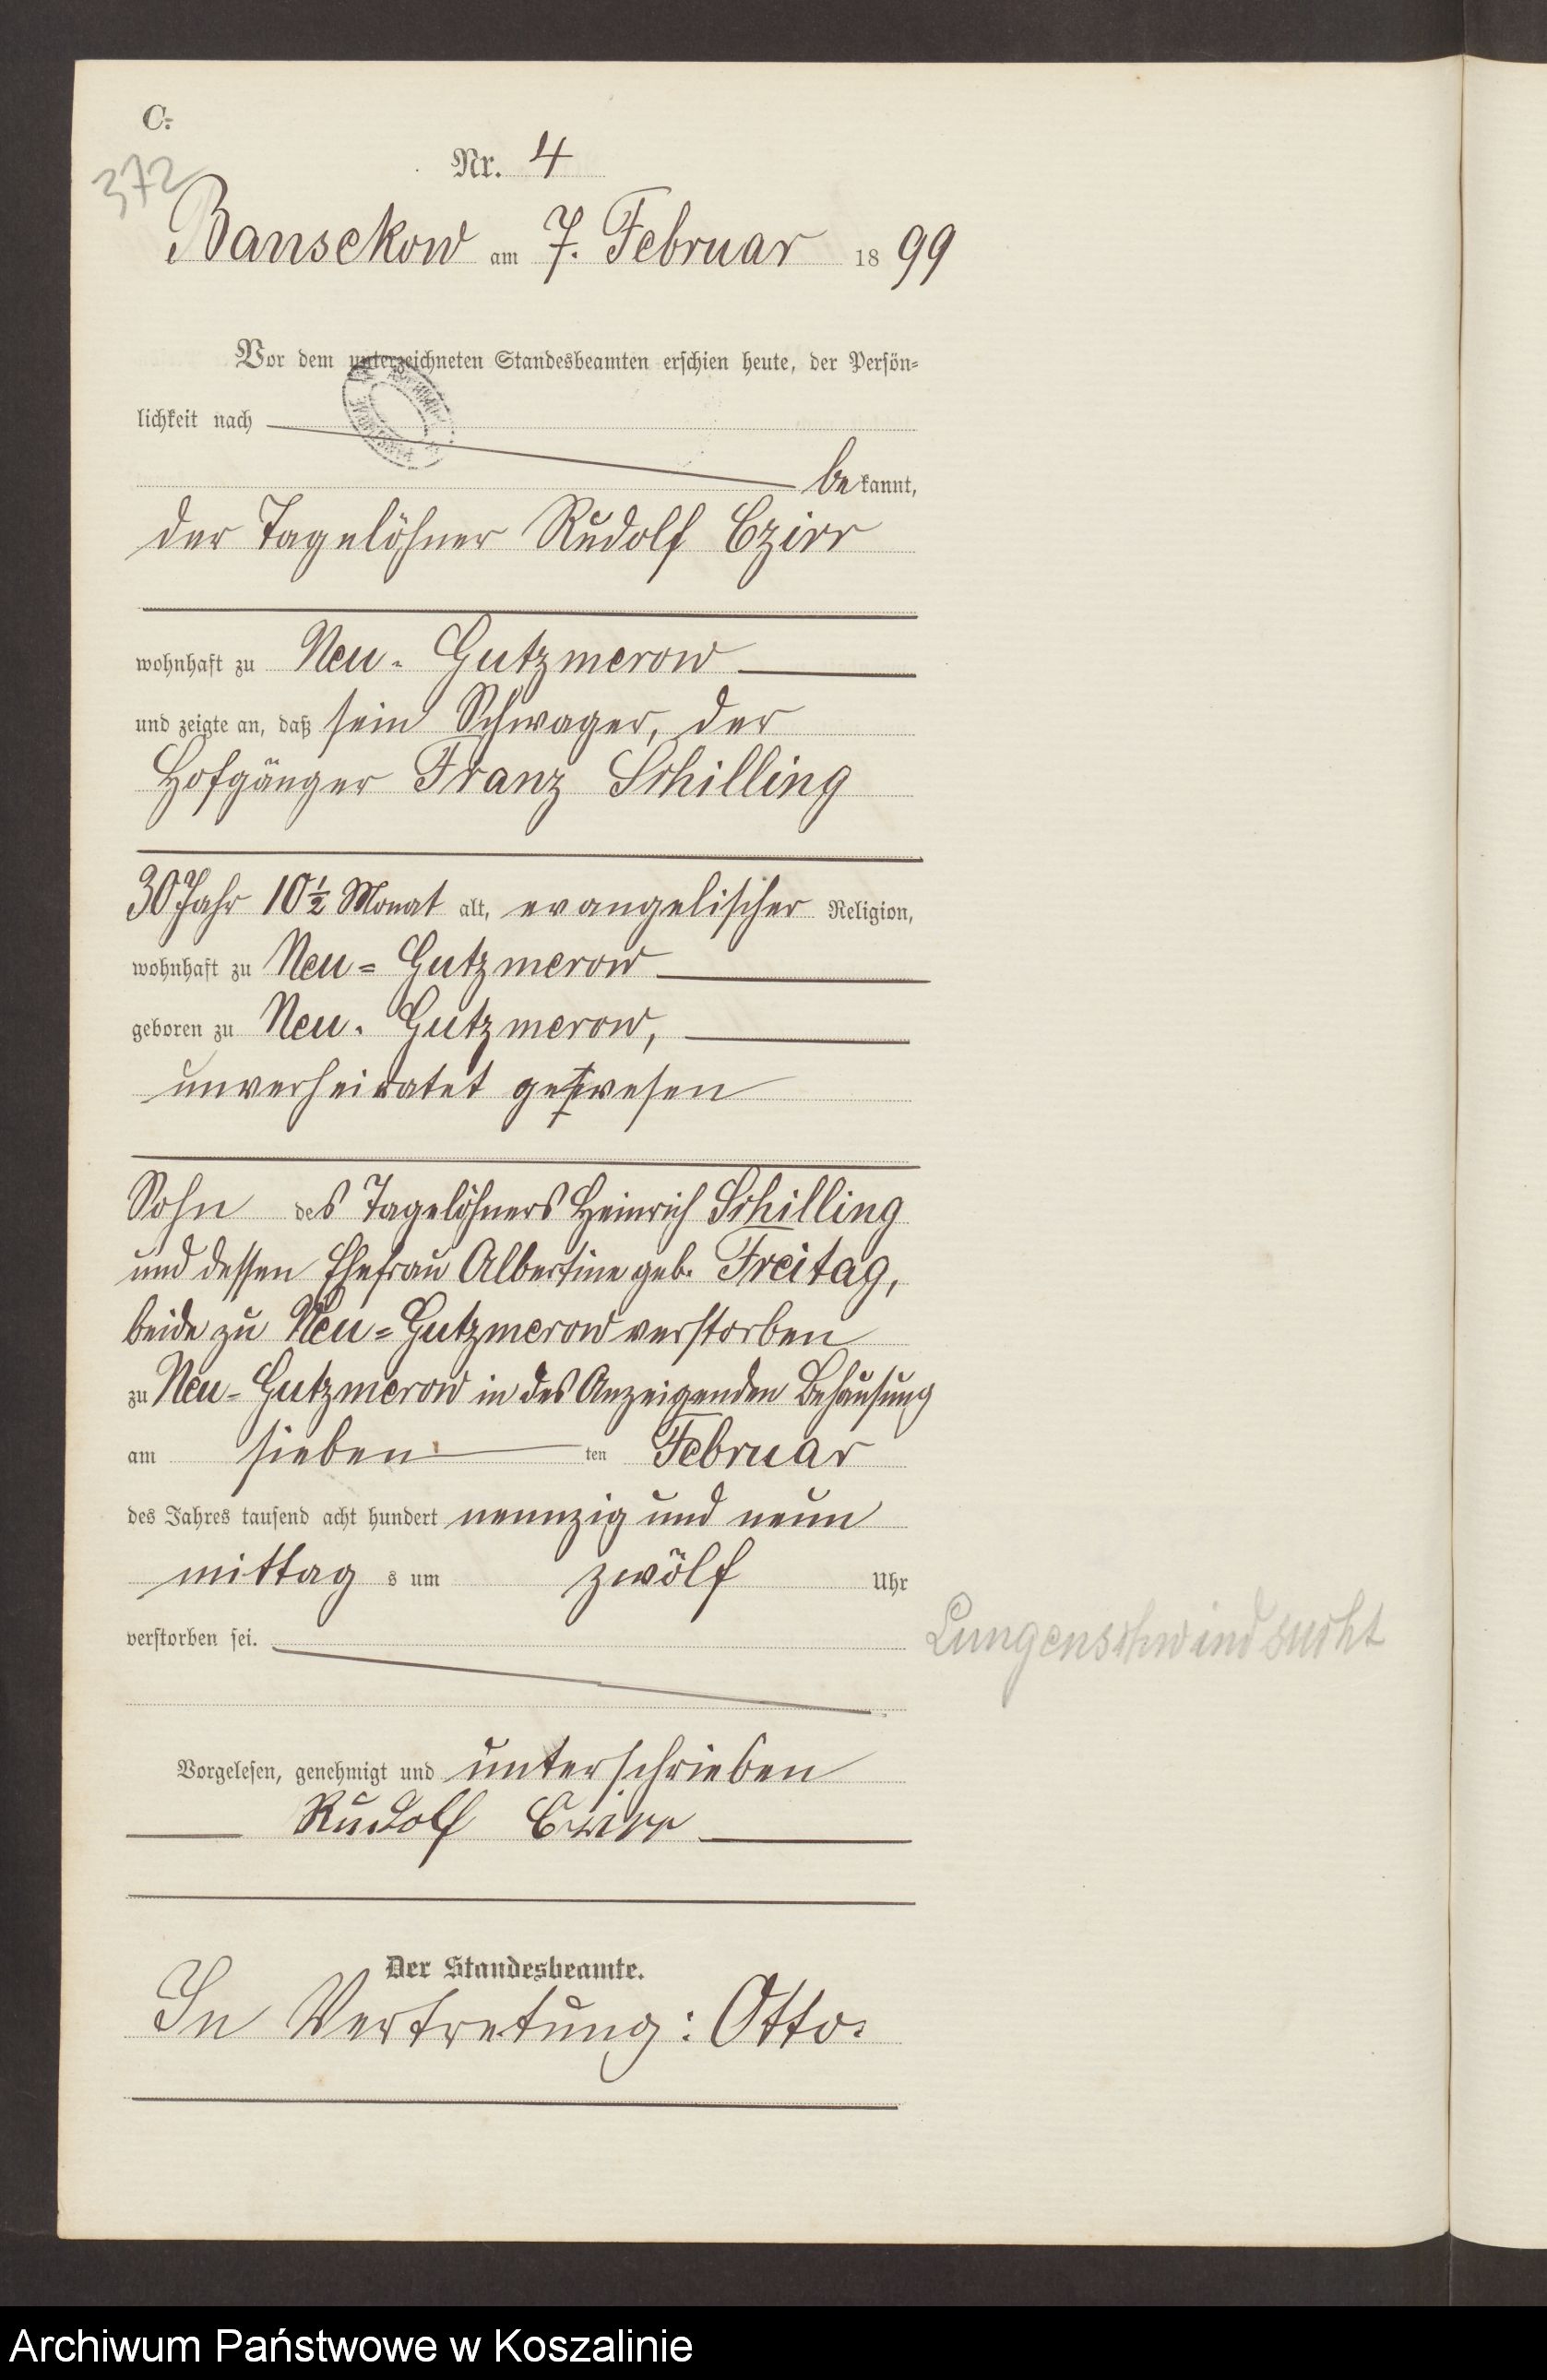 C.
372
Nr. 4
Bansekow am 7. Februar 1899
Vor dem unterzeichneten Standesbeamten erschien heute, der Persön-
lichkeit nach
bekannt,
der Tagelöhner Rudolf Czirr
wohnhaft zu Neu-Gutzmerow
und zeigte an, daß sein Schwager, der
Hofgänger Franz Schilling
30 Jahr 10½ Monat alt, evangelischer Religion,
wohnhaft zu Neu=Gutzmerow
geboren zu Neu-Gutzmerow,
unverheiratet gewesen
Sohn des Tagelöhners Heinrich Schilling
und dessen Ehefrau Albertine geb. Freitag,
beide zu Neu=Gutzmerow verstorben
zu Neu-Gutzmerow in des Anzeigenden Behausung
am sieben ten Februar
des Jahres tausend acht hundert neunzig und neun
mittag s um zwölf Uhr
verstorben sei.
Lungenschwindsucht
Vorgelesen, genehmigt und unterschrieben
Rudolf Czirr
Der Standesbeamte.
In Vertretung: Otto.
Archiwum Państwowe w Koszalinie